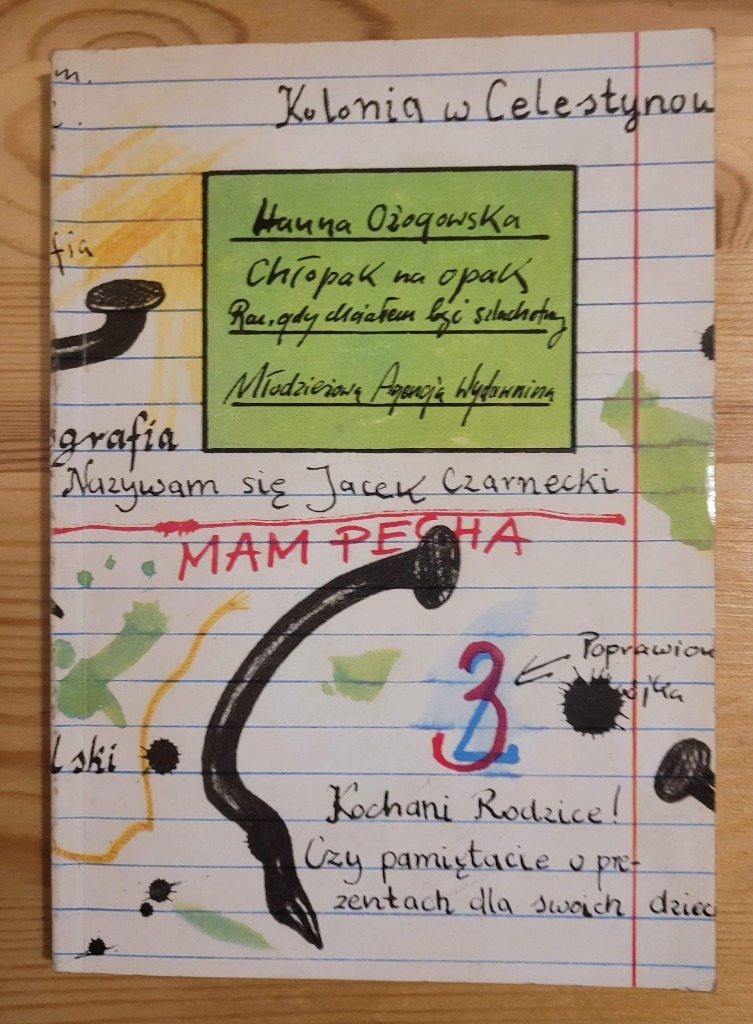 m.
Kolonia w Celestynow
fia
Hanna Ożogowska
Chłopak na opak
Raz, gdy chciałem być szlachetny
Młodzieżowa Agencja Wydawnicza
grafia
Nazywam się Jacek Czarnecki
MAM PECHA
3
Poprawion
wójka
lski
Kochani Rodzice!
Czy pamiętacie o pre-
zentach dla swoich dziec